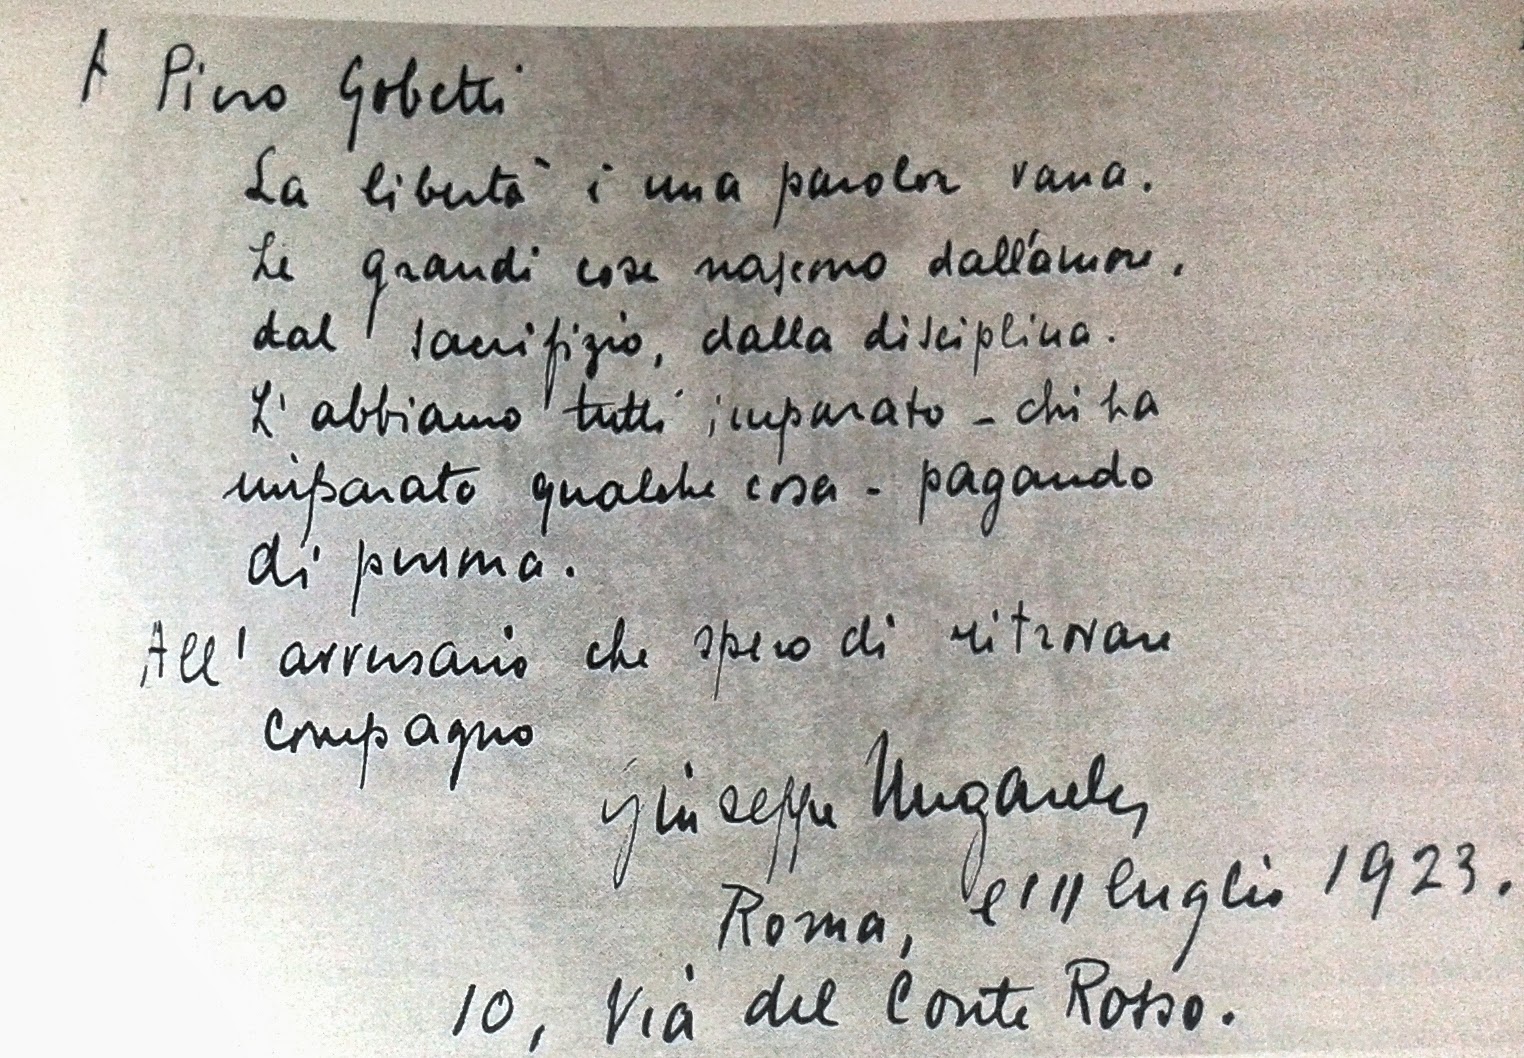 A Piero Gobetti
La libertà è una parola vana.
Le grandi cose nascono dall'amore,
dal sacrifizio, dalla disciplina.
L'abbiamo tutti imparato - chi ha
imparato qualche cosa - pagando
di persona.
All'avversario che spero di ritrovare
compagno
Giuseppe Ungaretti
Roma, l'11 luglio 1923.
10, Via del Conte Rosso.